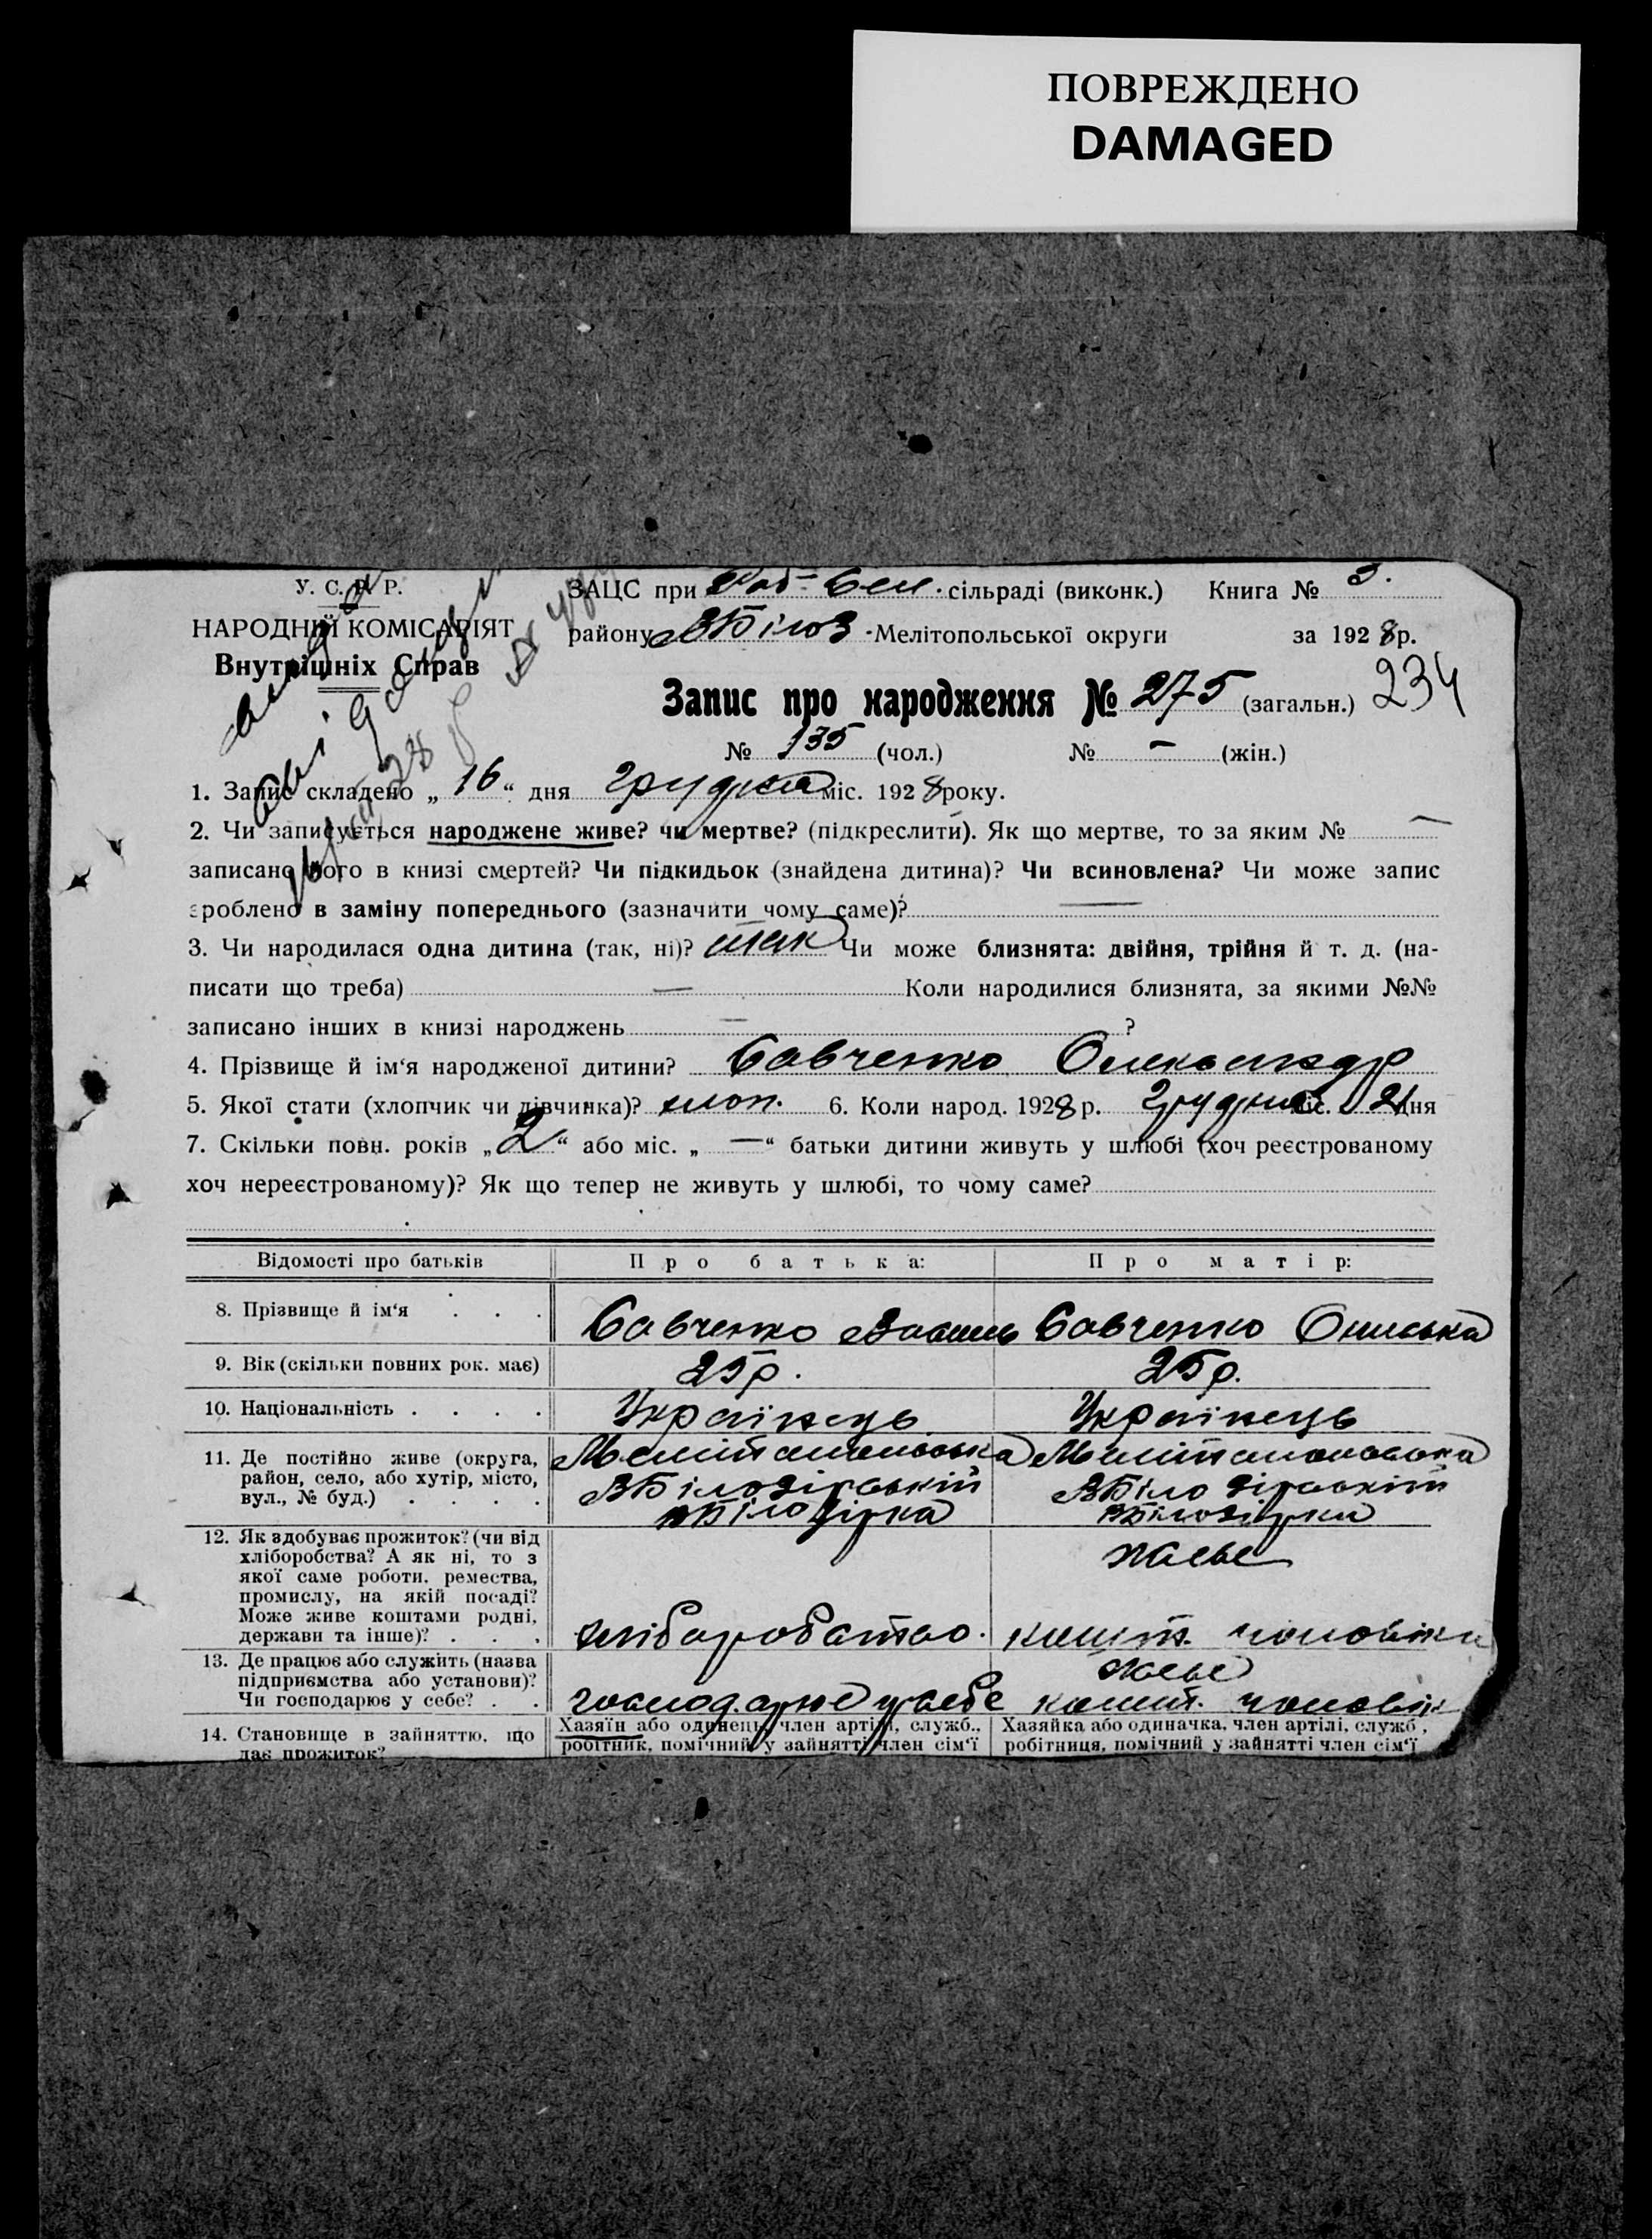 ПОВРЕЖДЕНО
DAMAGED
У. С. Р. Р.
НАРОДНІЙ КОМІСАРІЯТ
Внутрішніх Справ
ЗАЦС при сільраді (виконк.) Книга № 3.
району ВБілоз Мелітопольської округи за 1928 р.
Запис про народження № 275 (загальн.) 234
№ 135 (чол.) № — (жін.)
1. Запис складено „ 16 “ дня грудня міс. 1928 року.
2. Чи записується народжене живе? чи мертве? (підкреслити). Як що мертве, то за яким № —
записано його в книзі смертей? Чи підкидьок (знайдена дитина)? Чи всиновлена? Чи може запис
зроблено в заміну попереднього (зазначити чому саме)? —
3. Чи народилася одна дитина (так, ні)? так Чи може близнята: двійня, трійня й т. д. (на-
писати що треба) — Коли народилися близнята, за якими №№
записано інших в книзі народжень — ?
4. Прізвище й ім‘я народженої дитини? Савченко Олександр
5. Якої статі (хлопчик чи дівчинка)? хлоп. 6. Коли народ. 1928 р. грудня міс. дня
7. Скільки повн. років „ 2 “ або міс. „ — “ батьки дитини живуть у шлюбі (хоч реєстрованому
хоч нереєстрованому)? Як що тепер не живуть у шлюбі, то чому саме?
Відомості про батьків Про батька: Про матір:
8. Прізвище й ім‘я . . . Савченко Василь Савченко Ониська
9. Вік (скільки повних рок. має) 25 р. 25 р.
10. Національність . . . . Українець Українець
11. Де постійно живе (округа, Мелітопольська Мелітопольська
район, село, або хутір, місто, ВБілозірський ВБілозірський
вул., № буд.) . . . . ВБілозірка ВБілозірка
12. Як здобуває прожиток? (чи від
хліборобства? А як ні, то з
якої саме роботи, ремества,
промислу, на якій посаді?
Може живе коштами родні,
держави та інше)? . . . кошт. чоловіка
13. Де працює або служить (назва
підприємства або установи)?
Чи господарює у себе? . . господарює у себе кошт. чоловік
14. Становище в зайняттю, що Хазяїн або одинець, член артілі, служб., Хазяйка або одиначка, член артілі, служб.,
дає прожиток? робітник, помічний у зайнятті член сім‘ї робітниця, помічний у зайнятті член сім‘ї